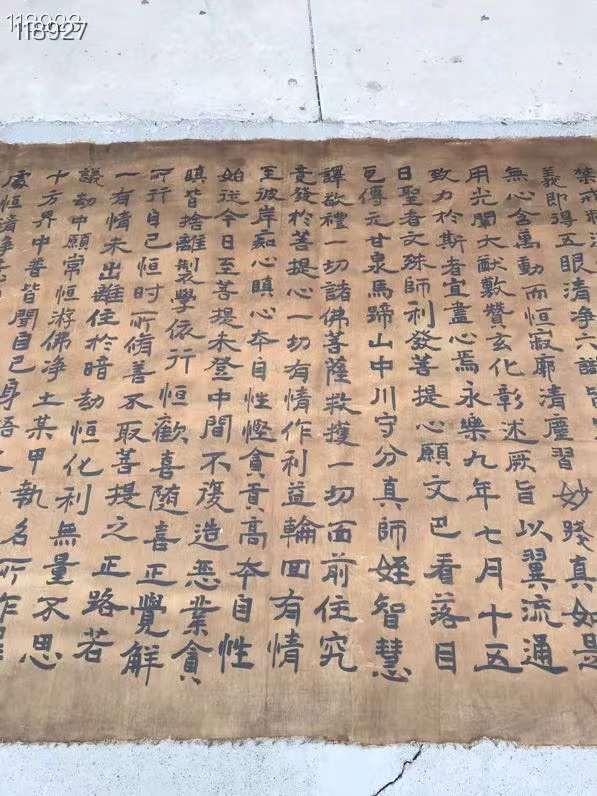 118927
禁戒
義即得五眼清淨六識皆
無心含萬動而恒寂廓清塵習妙踐真如是
用光闡大猷敷贊玄化彰述厥旨以翼流通
致力於斯者宜盡心焉永樂九年七月十五
日聖者文殊師利發菩提心願文巴看落目
瓦傳元甘泉馬蹄山中川守分真師姪智慧
譯敬禮一切諸佛菩薩救護一切面前住究
竟發於菩提心一切有情作利益輪回有情
至彼岸痴心瞋心夲自性慳貪貢高夲自性
始從今日至菩提未登中間不復造惡業貪
瞋皆捨離製學依行恒歡喜随喜正覺解
所行自己恒時所脩善不取菩提之正路若
一有情未出離住於暗劫恒化利無量不思
議劫中願常恒游佛淨土某甲執名所作罪
十方界中普皆聞自己身語
處恒清淨